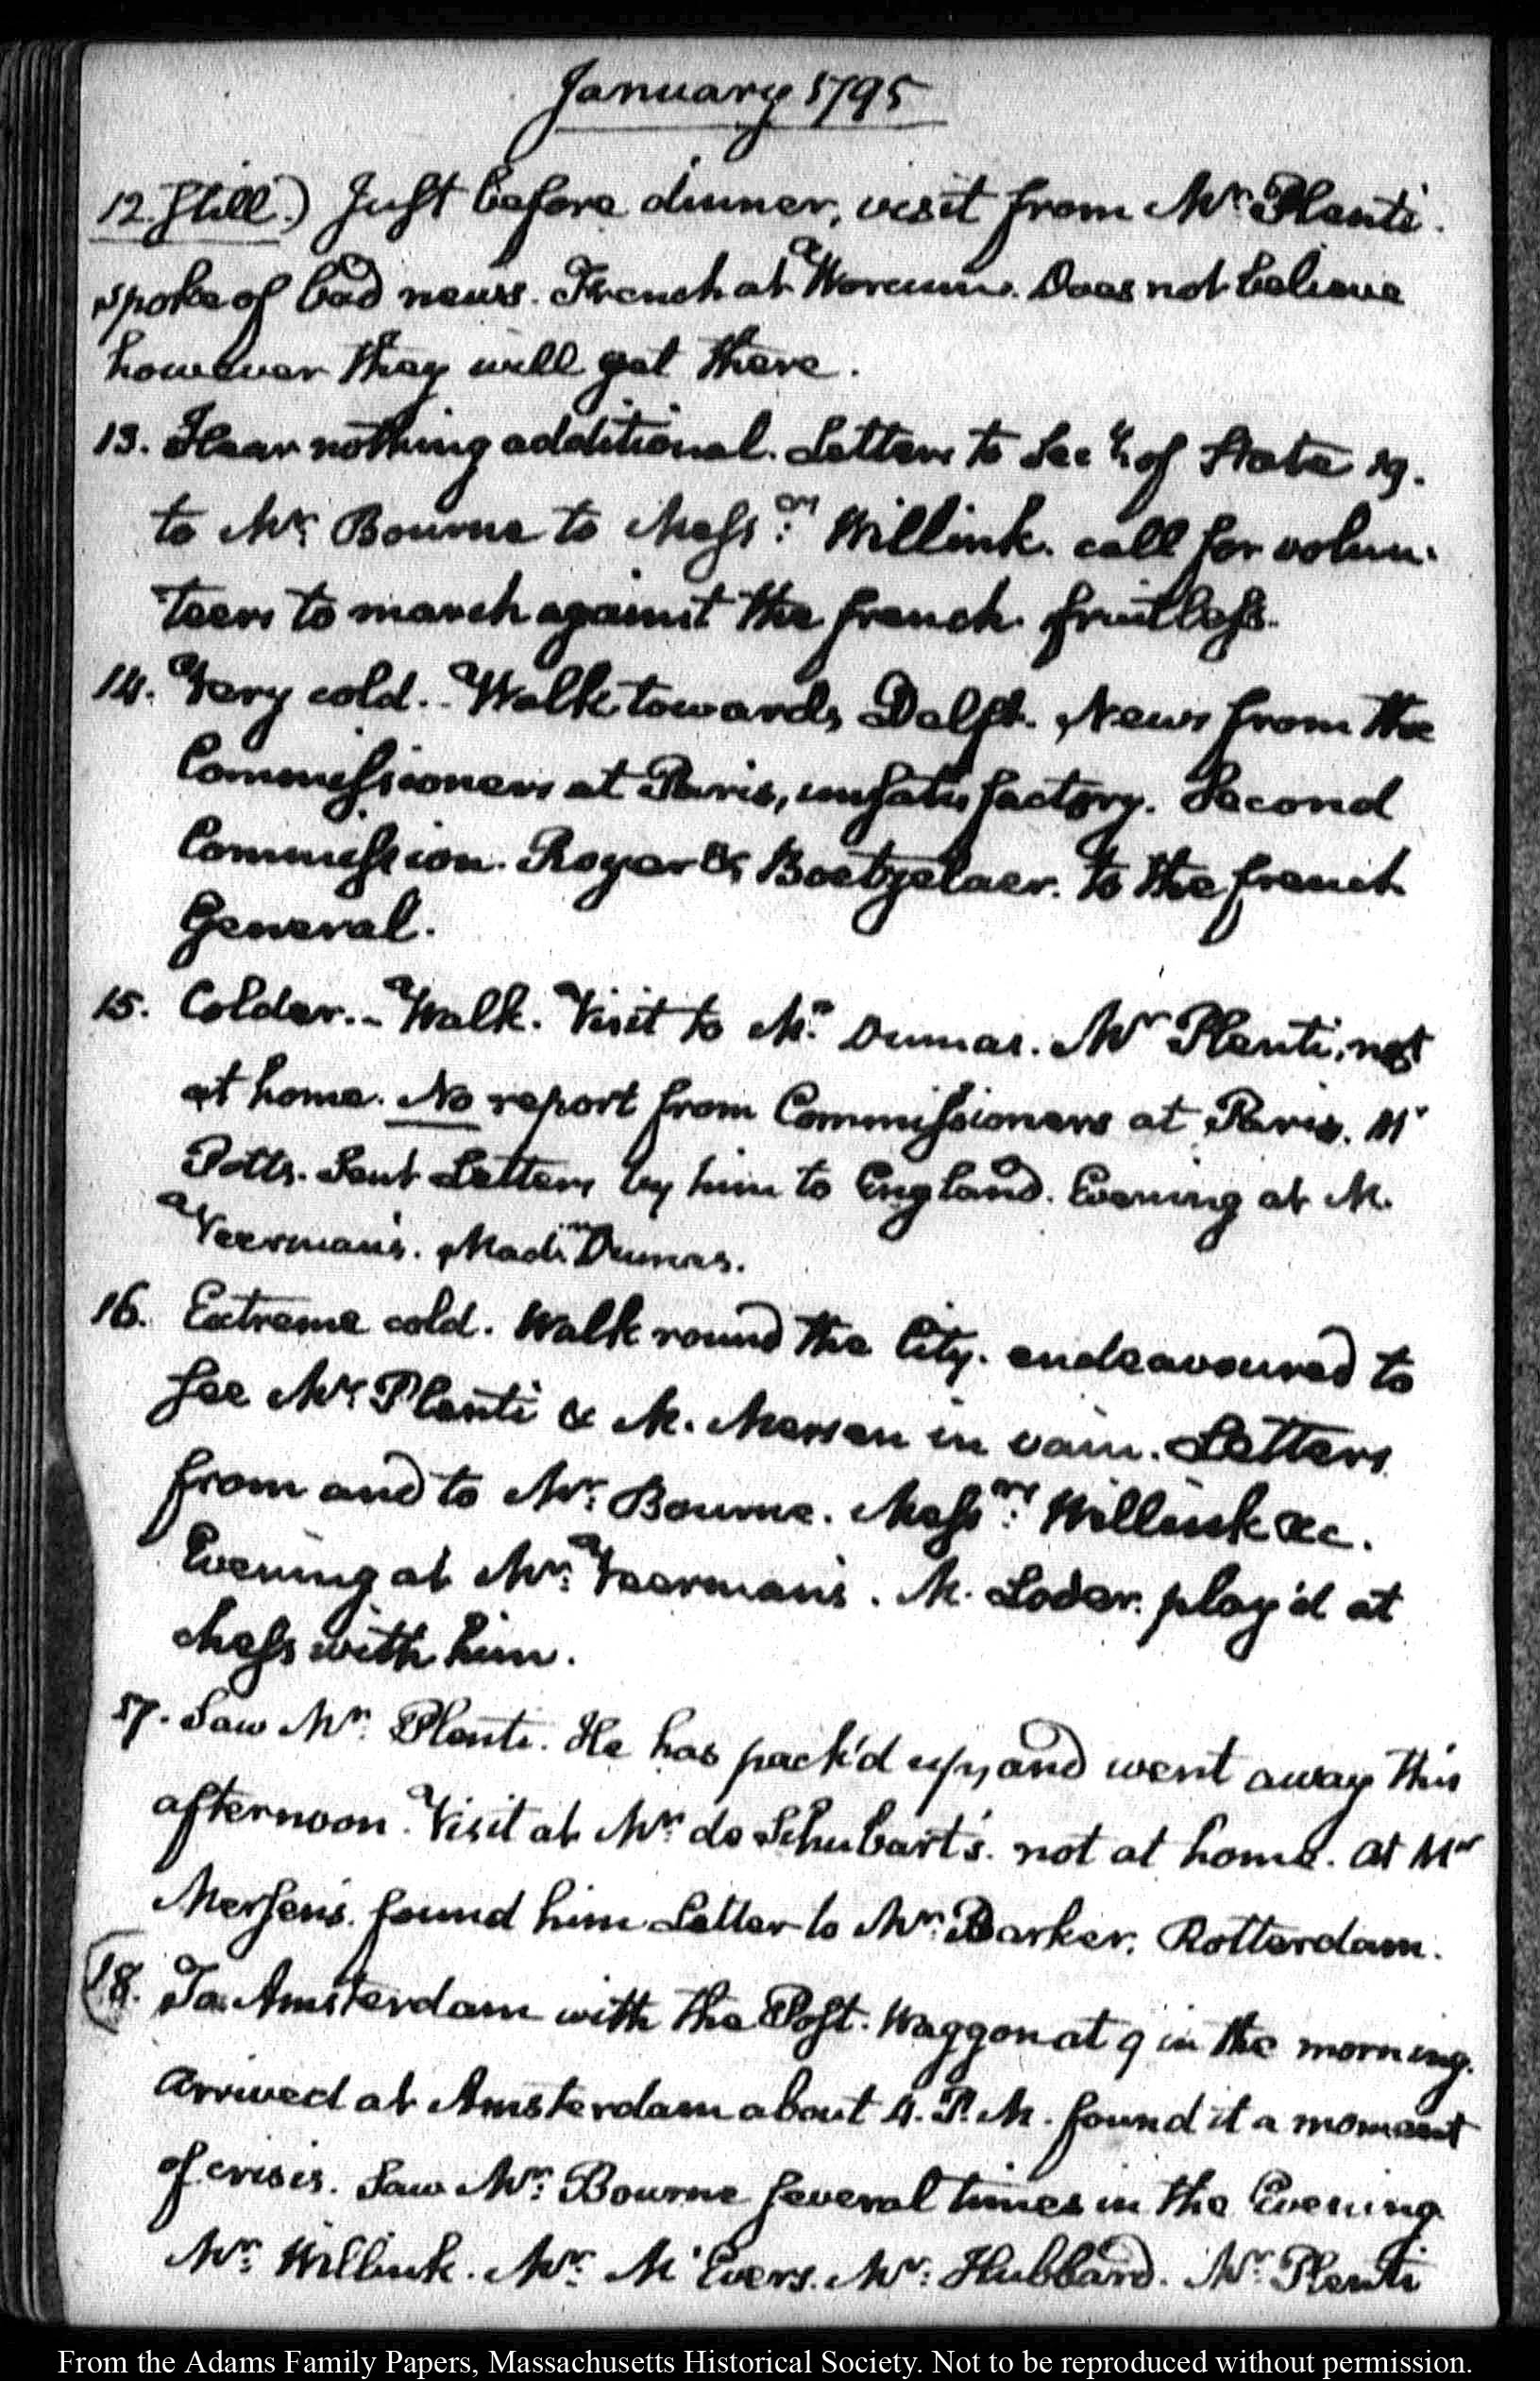 January 1795
12. Still.) Just before dinner, visit from Mr. Plenti.
spoke of bad news. French at Worcum. Does not believe
however they will get there.
13. Hear nothing additional. Letters to Secy. of State 19.
to Mr. Bourne to Messrs. Willink. call for volun-
teers to march against the french. fruitless.
14. Very cold. - Walk towards Delft. News from the
Commissioners at Paris, unsatisfactory. Second
Commission. Royer & Boetzelaer. to the french
General.
15. Colder. - Walk. Visit to Mr. Dumas. Mr Plenti, not
at home. No report from Commissioners at Paris. Mr
Potts. Sent Letters by him to England. Evening at M.
Veerman's. Madm. Dumas.
16. Extreme cold. Walk round the City. endeavoured to
see Mr. Plenti & M. Mersen in vain. Letters
from and to Mr. Bourne. Messrs. Willink &c.
Evening at Mr. Veerman's. M. Loder. play'd at
chess with him.
17. Saw Mr. Plenti. He has pack'd up, and went away this
afternoon. Visit at Mr. de Schubart's. not at home. at Mr
Mersen's. found him Letter to Mr. Barker. Rotterdam.
18. To Amsterdam with the Post-Waggon at 9 in the morning.
arrived at Amsterdam about 4. P.M. found it a moment
of crisis. Saw Mr. Bourne several times in the Evening
Mr. Willink. Mr. McEvers. Mr. Hubbard. Mr. Plenti
From the Adams Family Papers, Massachusetts Historical Society. Not to be reproduced without permission.